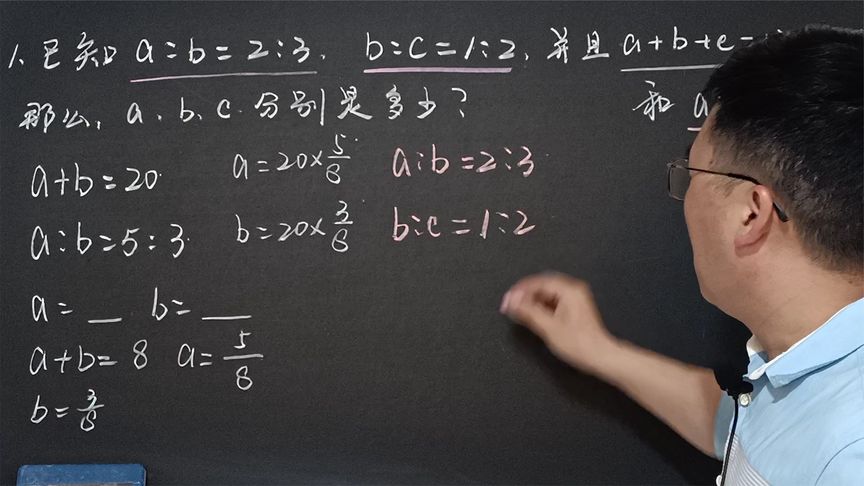 1、已知 a:b=2:3, b:c=1:2, 并且 a+b+c=
那么, a、b、c 分别是多少? 和 a
a+b=20 a=20×5/8 a:b=2:3
a:b=5:3 b=20×3/8 b:c=1:2
a=__ b=__
a+b=8 a=5/8
b=3/8